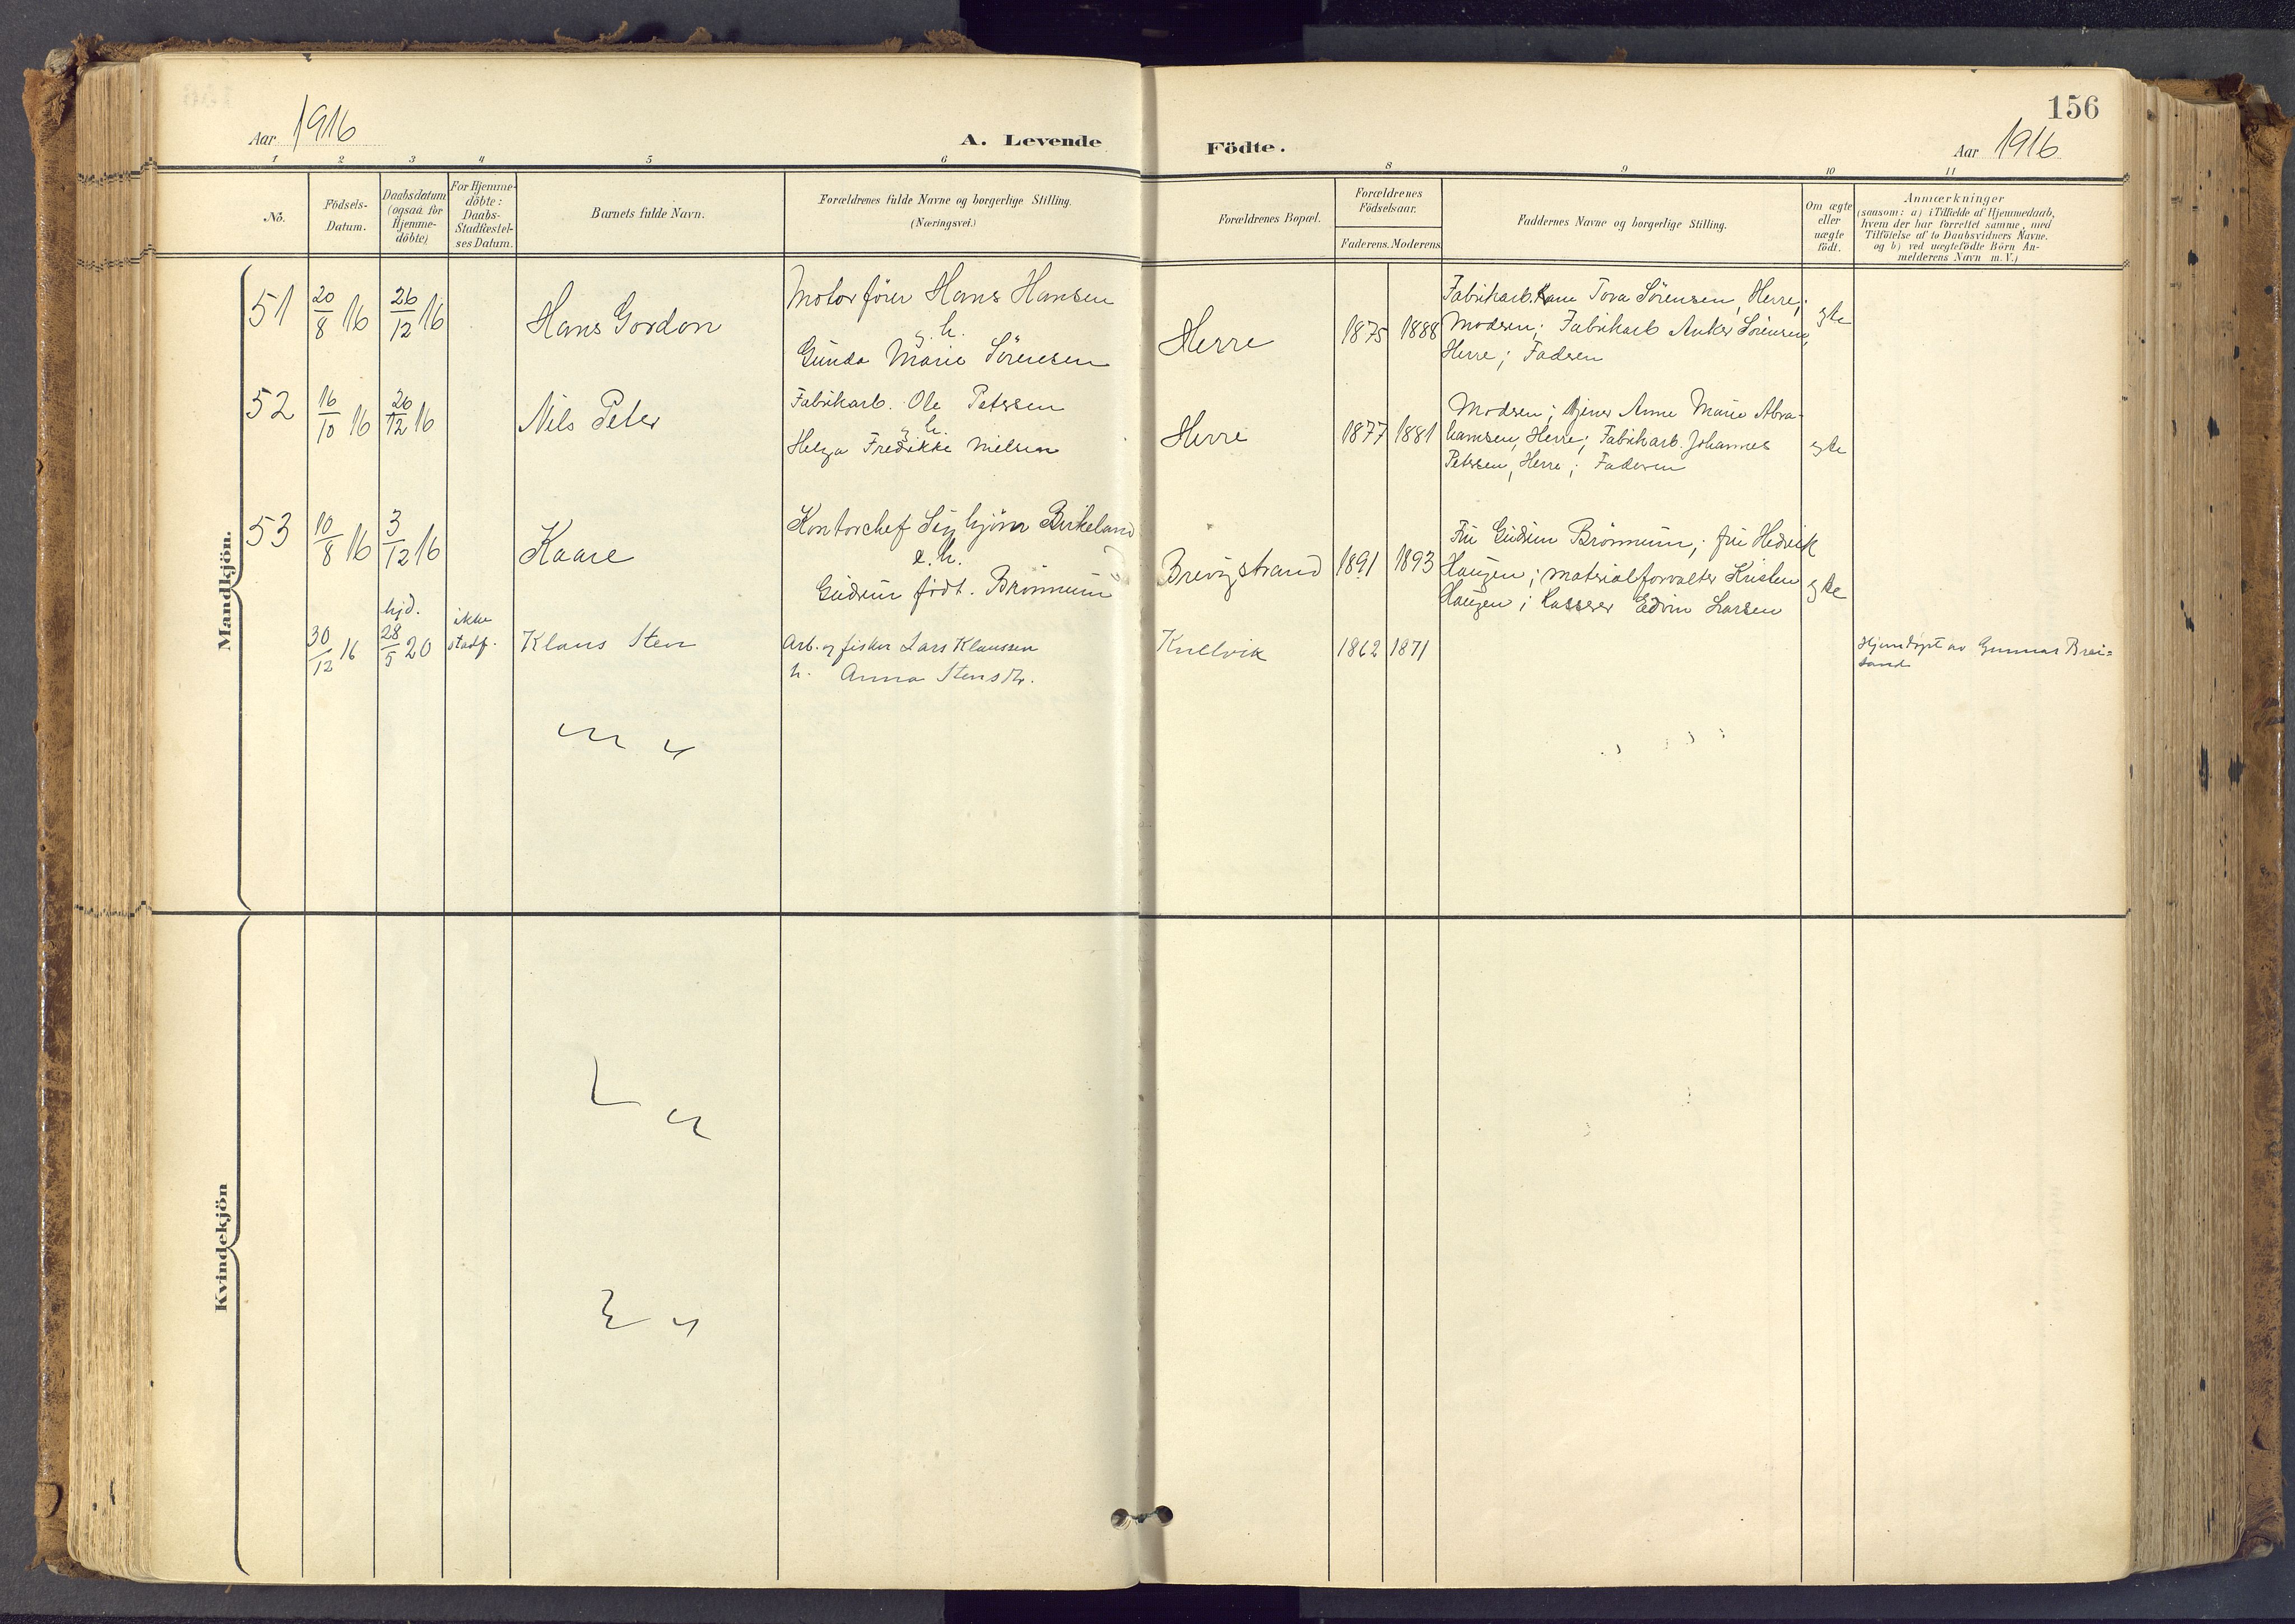 156
Aar 1916
A. Levende Födte.
Aar 1916
1 2 3 4 5 6 8 9 10 11
No.
Födsels-
Datum.
Daabsdatum
(ogsaa for
Hjemme-
döbte)
For Hjemme-
döbte:
Daabs-
Stadfæstel-
ses Datum.
Barnets fulde Navn.
Forældrenes fulde Navne og borgerlige Stilling.
(Næringsvei.)
Forældrenes Bopæl.
Forældrenes
Födselsaar.
Faderens. Moderens.
Faddernes Navne og borgerlige Stilling.
Om ægte
eller
uægte
födt.
Anmærkninger
(saasom: a) i Tilfælde af Hjemmedaab,
hvem der har forrettet samme, med
Tilföielse af to Daabsvidners Navne.
og b) ved uægtefödte Börn An-
melderens Navn m. V.)
Mandkjön.
51 20/8 16 26/12 16 Hans Gordon
Motorförer Hans Hansen
h.
Gunda Marie Sörensen
Herre 1875 1888
Fabrikarb. Kone Tova Sörensen, Herre;
Modern; Fabrikarb Anker Sörensen,
Herre; Fadern
egte
52 16/10 16 26/12 16 Nils Peter
Fabrikarb. Ole Petersen
h.
Helga Fredrikke Nielsen
Herre 1877 1881
Modern; Anne Marie Abra-
hamsen, Herre; Fabrikarb. Johannes
Petersen, Herre; Faderen
egte
53 10/8 16 3/12 16 Kaare
Kontorchef Sigbjörn Birkeland
e. h.
Gudrun födt. Brönnum
Brevigstrand 1891 1893
Fru Gudrun Brönnum; fru Hedvik
Haugen; materialforvalter Kristen
Haugen; kasserer Edvin Larsen
egte
30/12 16 hjd. 28/5 20 ikke
stadf.
Klaus Sten
Arb. og fisker Lars Klaussen
h. Anna Stensdtr.
Kullvik 1862 1871
Hjemdöpt av Gunnar Brei-
sand
Kvindekjön